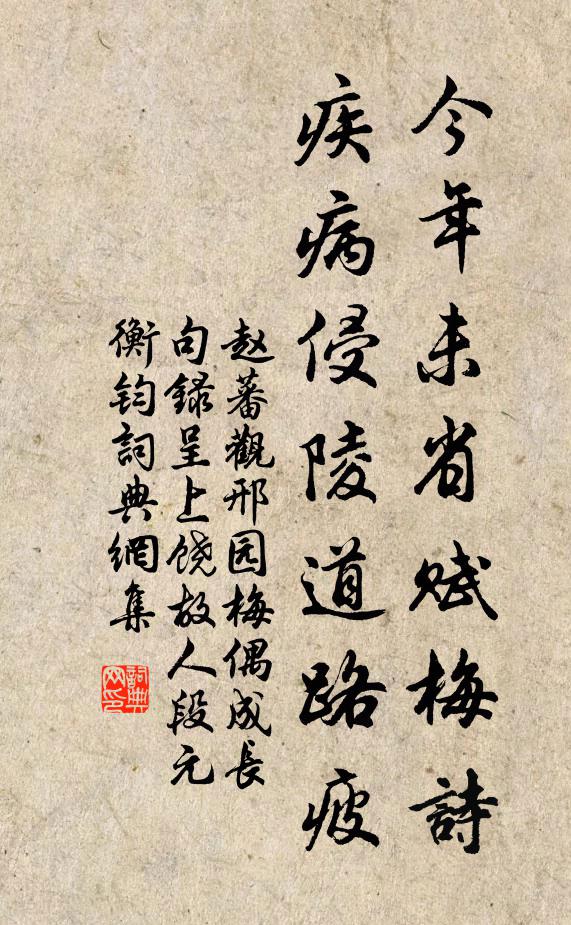 今年未省赋梅詩
疾病侵陵道路疲
赵蕃觀邢园梅偶成長
句録呈上饶故人段元
衡钧詞典網集
詞典网印